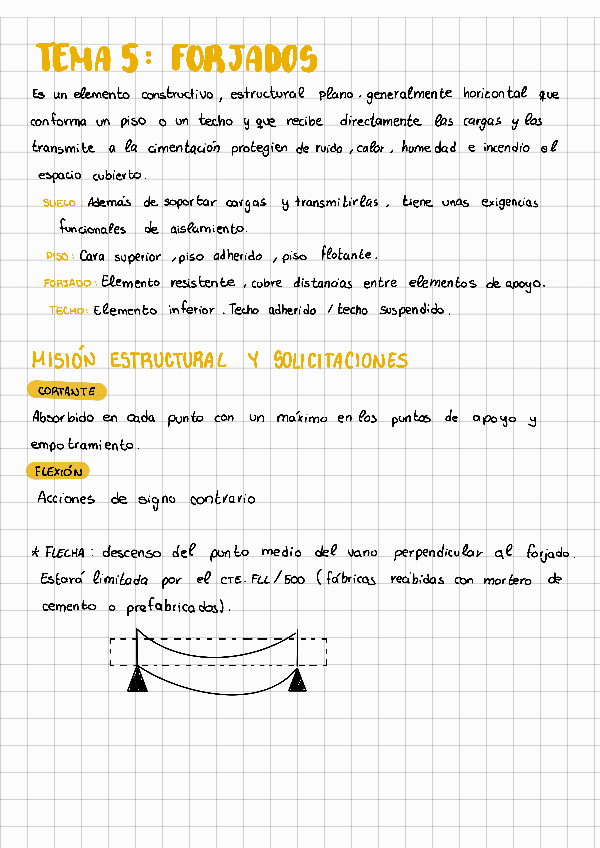 TEMA 5: FORJADOS
Es un elemento constructivo, estructural plano. generalmente horizontal que
conforma un piso o un techo y que recibe directamente las cargas y las
transmite a la cimentación protegien de ruido, calor, humedad e incendio el
espacio cubierto.
SUELO: Además de soportar cargas y transmitirlas, tiene unas exigencias
funcionales de aislamiento.
PISO: Cara superior, piso adherido, piso flotante.
FORJADO: Elemento resistente, cubre distancias entre elementos de apoyo.
TECHO: Elemento inferior. Techo adherido / techo suspendido.
MISIÓN ESTRUCTURAL Y SOLICITACIONES
CORTANTE
Absorbido en cada punto con un máximo en los puntos de apoyo y
empotramiento.
FLEXIÓN
Acciones de signo contrario
* FLECHA: descenso del punto medio del vano perpendicular al forjado.
Estará limitada por el CTE. FLL/500 (fábricas recibidas con mortero de
cemento o prefabricados).